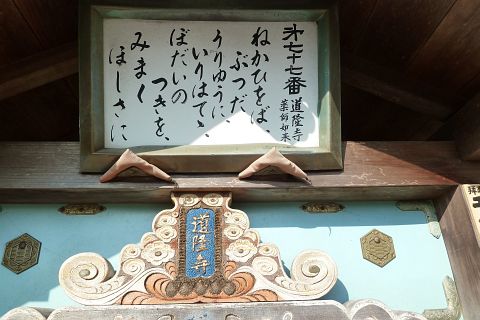 第七十七番
道隆寺
薬師如来
ねかひをば、
ぶつだ
うりゆうに
いりはてゝ
ぼだいの
つきを、
みまく
ほしさに
道隆寺